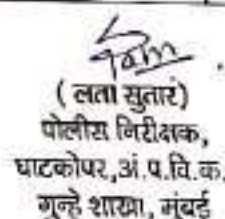 ( लता सुतार)
पोलीस निरीक्षक,
घाटकोपर,अं.प.वि.क.
गुन्हे शाखा, मुंबई